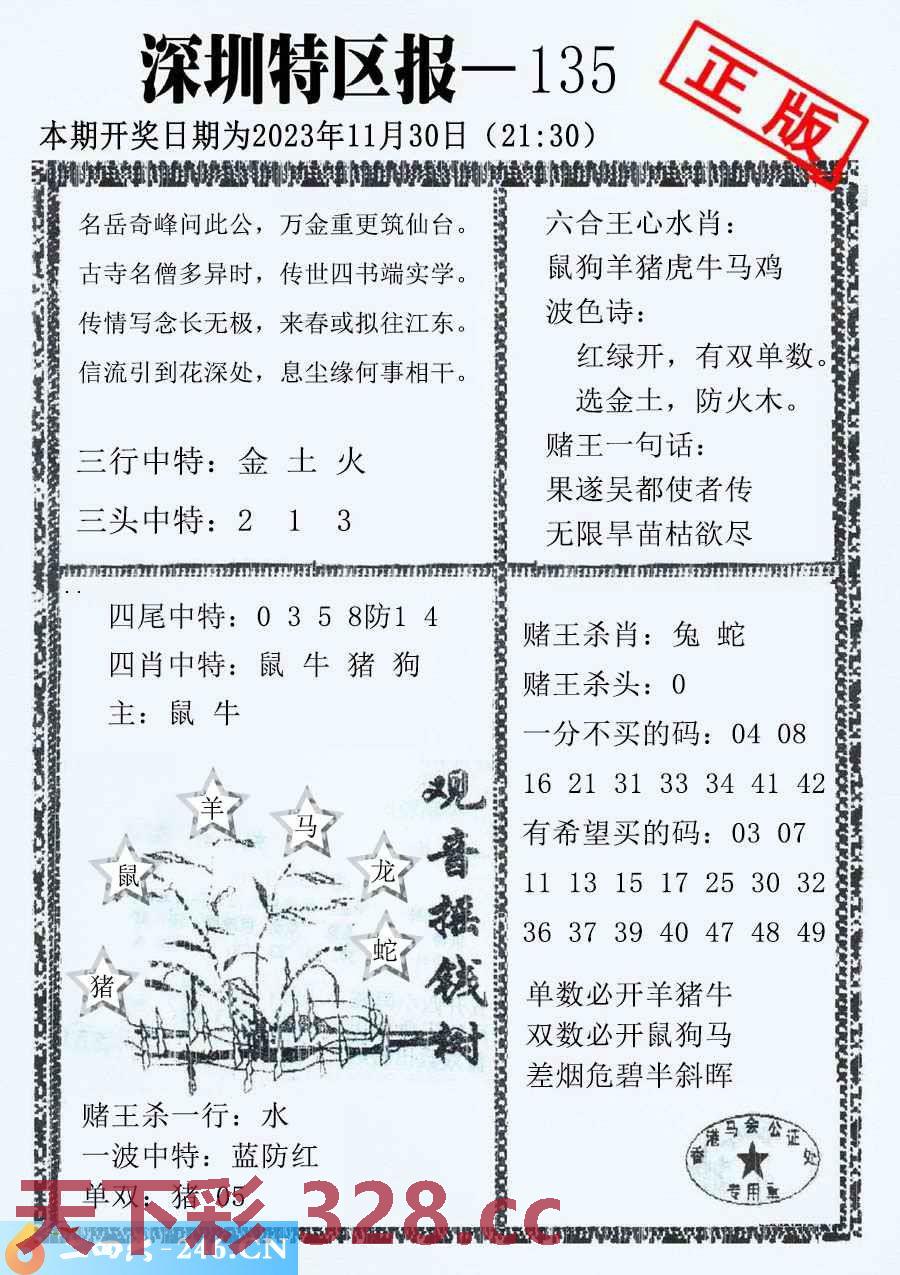 深圳特区报—135
正版
本期开奖日期为2023年11月30日（21:30）
名岳奇峰问此公，万金重更筑仙台。
古寺名僧多异时，传世四书端实学。
传情写念长无极，来春或拟往江东。
信流引到花深处，息尘缘何事相干。
三行中特：金 土 火
三头中特：2 1 3
六合王心水肖：
鼠狗羊猪虎牛马鸡
波色诗：
红绿开，有双单数。
选金土，防火木。
赌王一句话：
果遂吴都使者传
无限旱苗枯欲尽
四尾中特：0 3 5 8防1 4
四肖中特：鼠 牛 猪 狗
主：鼠 牛
羊
马
鼠
龙
蛇
猪
观音摇钱树
赌王杀一行：水
一波中特：蓝防红
单双：猪 05
赌王杀肖：兔 蛇
赌王杀头：0
一分不买的码：04 08
16 21 31 33 34 41 42
有希望买的码：03 07
11 13 15 17 25 30 32
36 37 39 40 47 48 49
单数必开羊猪牛
双数必开鼠狗马
差烟危碧半斜晖
香港马会公证处
专用章
天下彩 328.cc
-246.CN